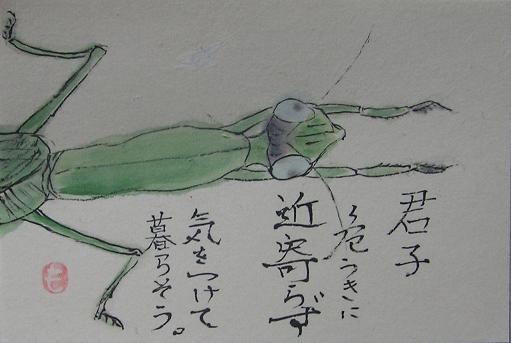 君子
危うきに
近寄らず
気をつけて
暮らそう。